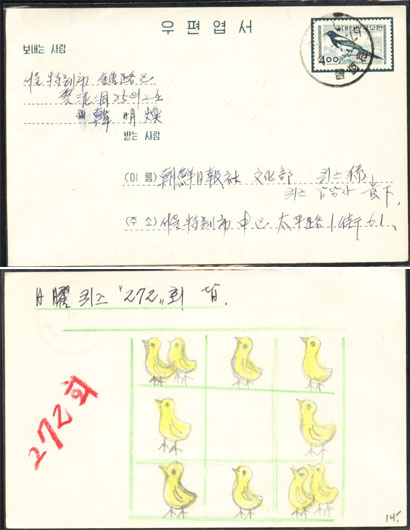 우편엽서
대한민국우표
4.00
보내는 사람
서울 特別市
韓 明 燦
받는 사람
(이 름) 朝鮮日報社 文化部 퀴즈係
퀴즈 貴下
(주 소) 서울 特別市 中区 太平路 1街 61
日曜 퀴즈 "272"회 답.
272회
145